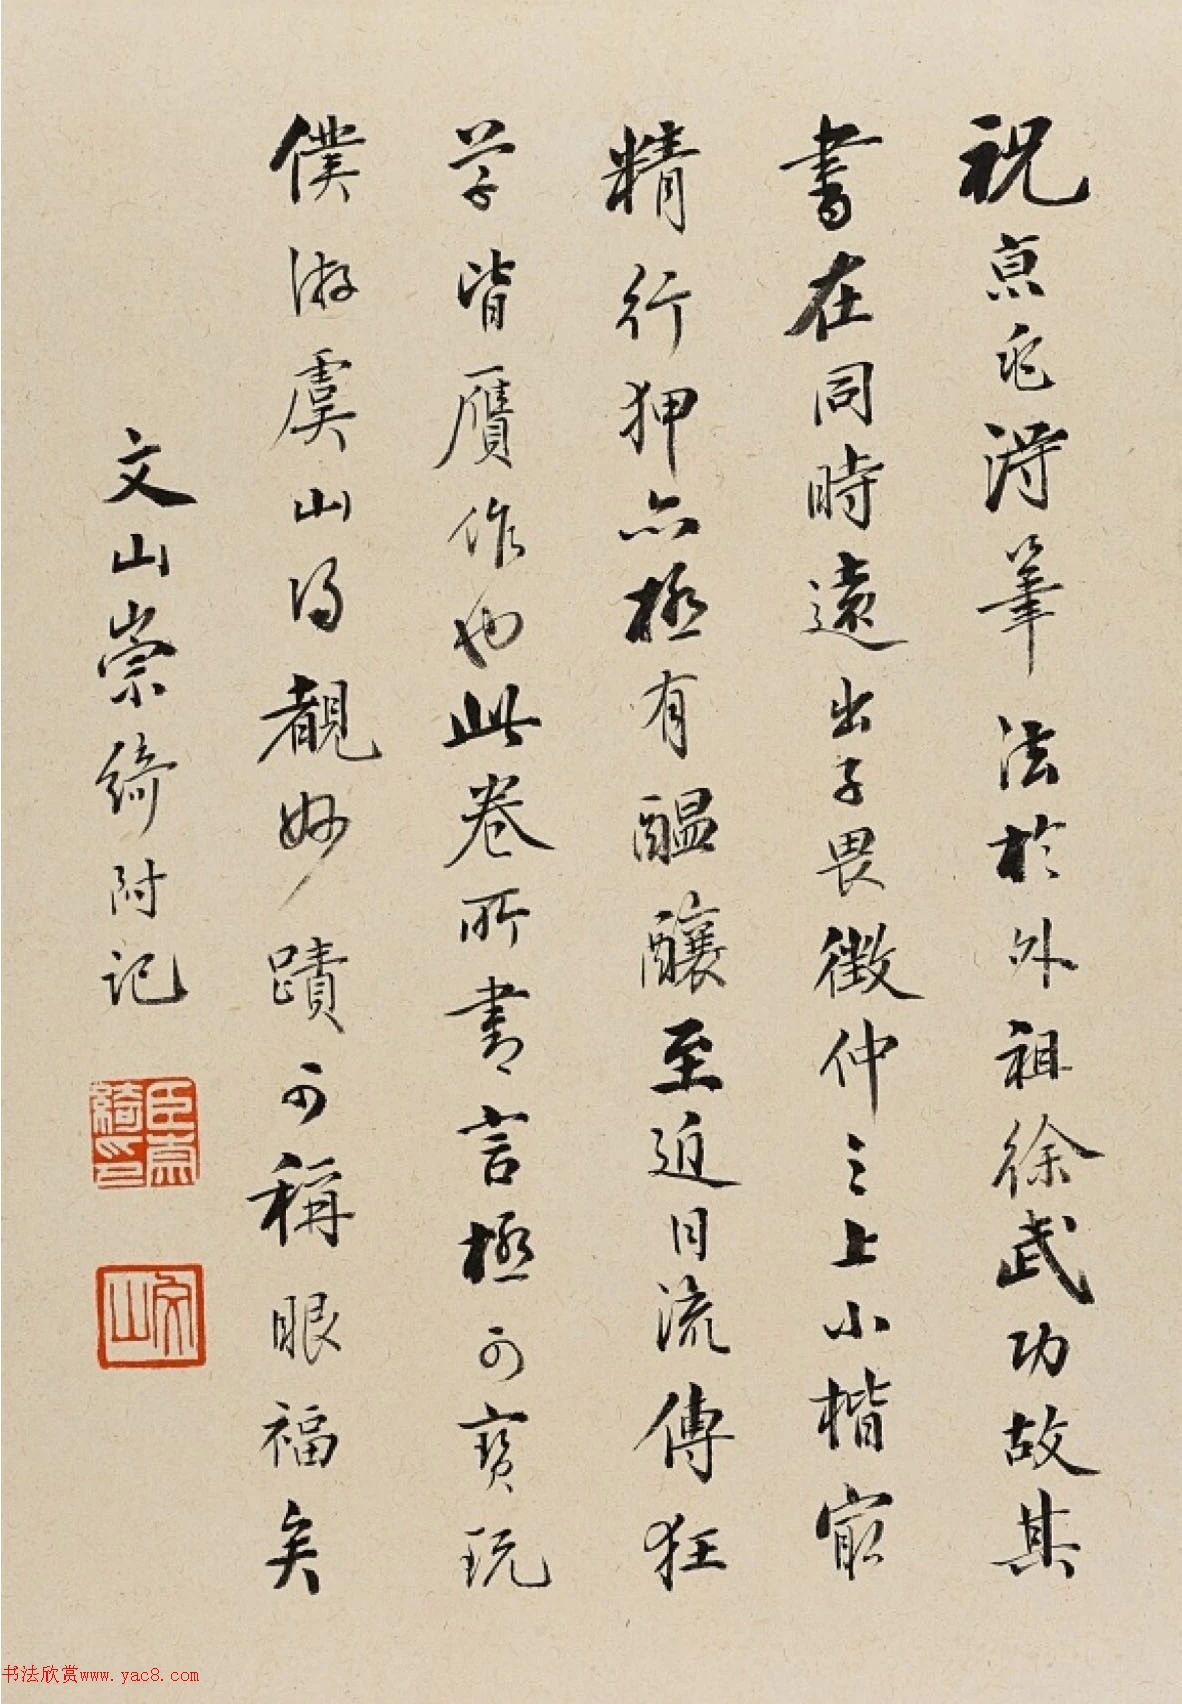 祝京兆得筆法於外祖徐武功故其
書在同時遠出子畏徵仲之上小楷㝡
精行狎亦極有醖釀至近日流傳狂
草皆贋作也此卷所書言極可寶玩
僕游虞山得覩妙蹟可稱眼福矣
文山崇綺附記
臣崇綺印
文山
书法欣赏www.yac8.com